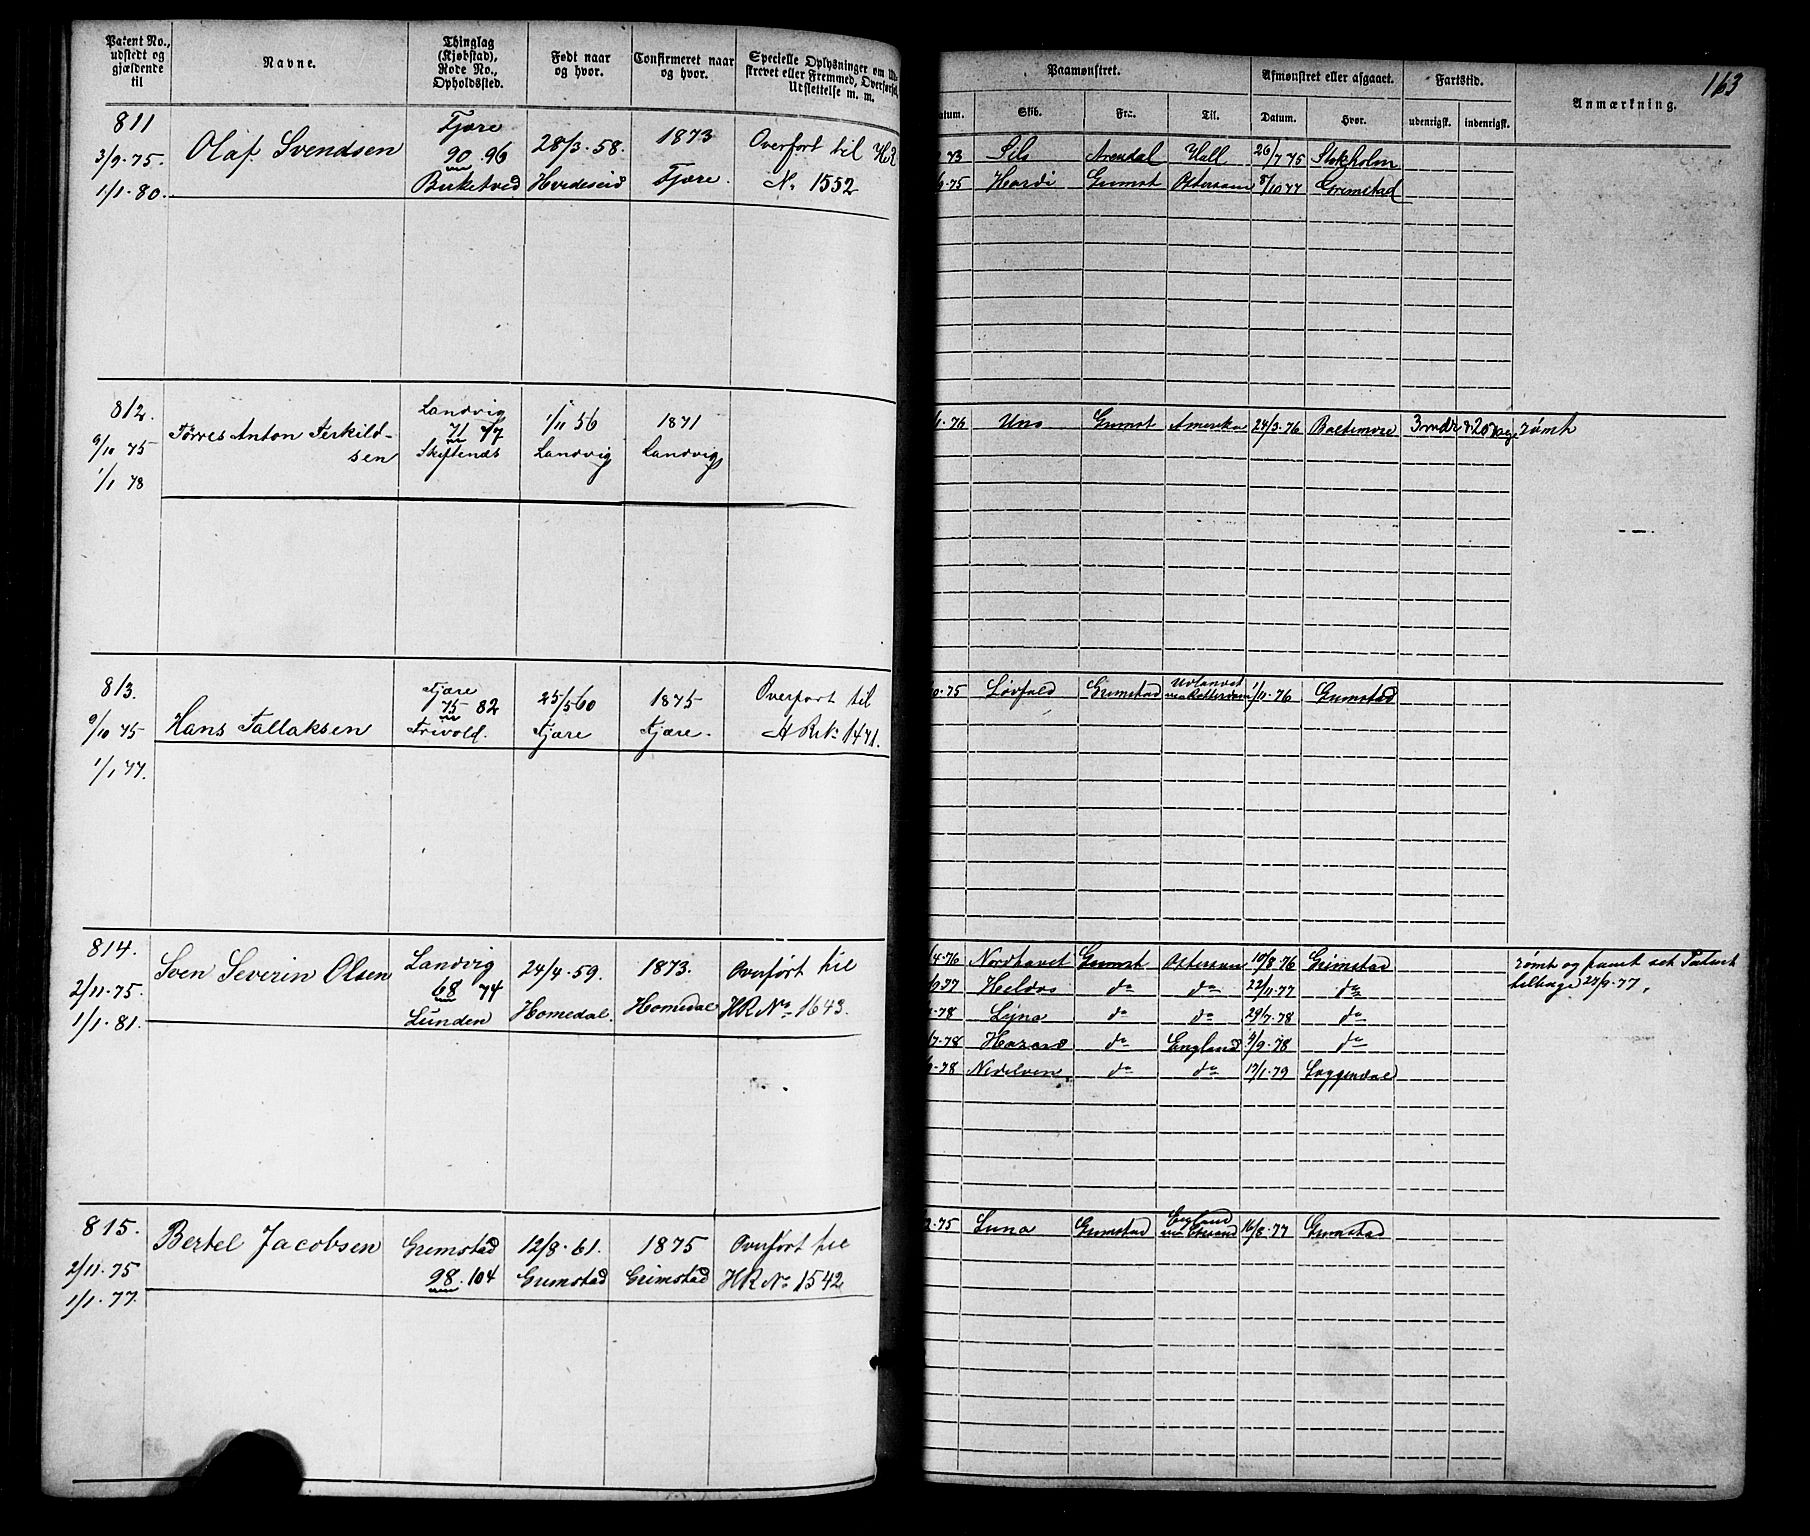 Patent No., udstedt og gjældende til
Navne.
Thinglag (Kjøbstad), Rode No., Opholdssted.
Født naar og hvor.
Confirmeret naar og hvor.
Specielle Oplysninger om Ud-
skrevet eller Fremmed, Overførsel,
Udslettelse m. m.
Paamønstret.
Afmønstret eller afgaaet.
Fartstid.
163
Skib.
Fra.
Til.
Datum.
Hvor.
udenrigsk.
indenrigsk.
Anmærkning.
811
3/9.75.
1/1.80.
Olaf Svendsen
Fjære
90.96
Birketved
28/3.58.
Hvideseid
1873
Fjære.
Overført til H.R.
No 1552
73 Sils Arendal Hull 26/7 75 Stokholm
75 Hardi Grimst Østersøen 8/10 77 Grimstad
812.
9/10 75
1/1 78
Tørres Anton Terkild-
sen
Landvig
71 47
Skiftenæs
1/11 56
Landvig
1871
Landvig
1.76 Uno Grimst Amerika 24/3.76 Baltimore 3 mdr & 20 Dage rømt
813.
9/10 75
1/1 77.
Hans Tallaksen
Fjære
75 82
Frivold.
25/5 60
Fjære
1875
Fjære.
Overført til
H R No 1471.
75 Løvfald Grimstad Udlandet
via Rotterdam 1/11.76 Grimstad
814.
2/11.75.
1/1.81.
Sven Severin Olsen
Landvig
68 74
Lunden
24/4.59.
Homedal.
1873.
Homedal
Overført til
HR No 1643.
4.76 Nordhavet Grimst Østersøen 19/8.76 Grimstad
77 do do 22/11.77 do
78 do do 29/7.78 do
7.78 do England 9.78 do
78 Nidelven do do 17/1.79
rømt og
tilbage 27/9.77.
815.
2/11.75
1/1.77.
Bertel Jacobsen
Grimstad
98.104
12/8.61.
Grimstad
1875
Grimstad
Overført til
HR No 1542
75 Luna Grimstad England 16/8.77 Grimstad